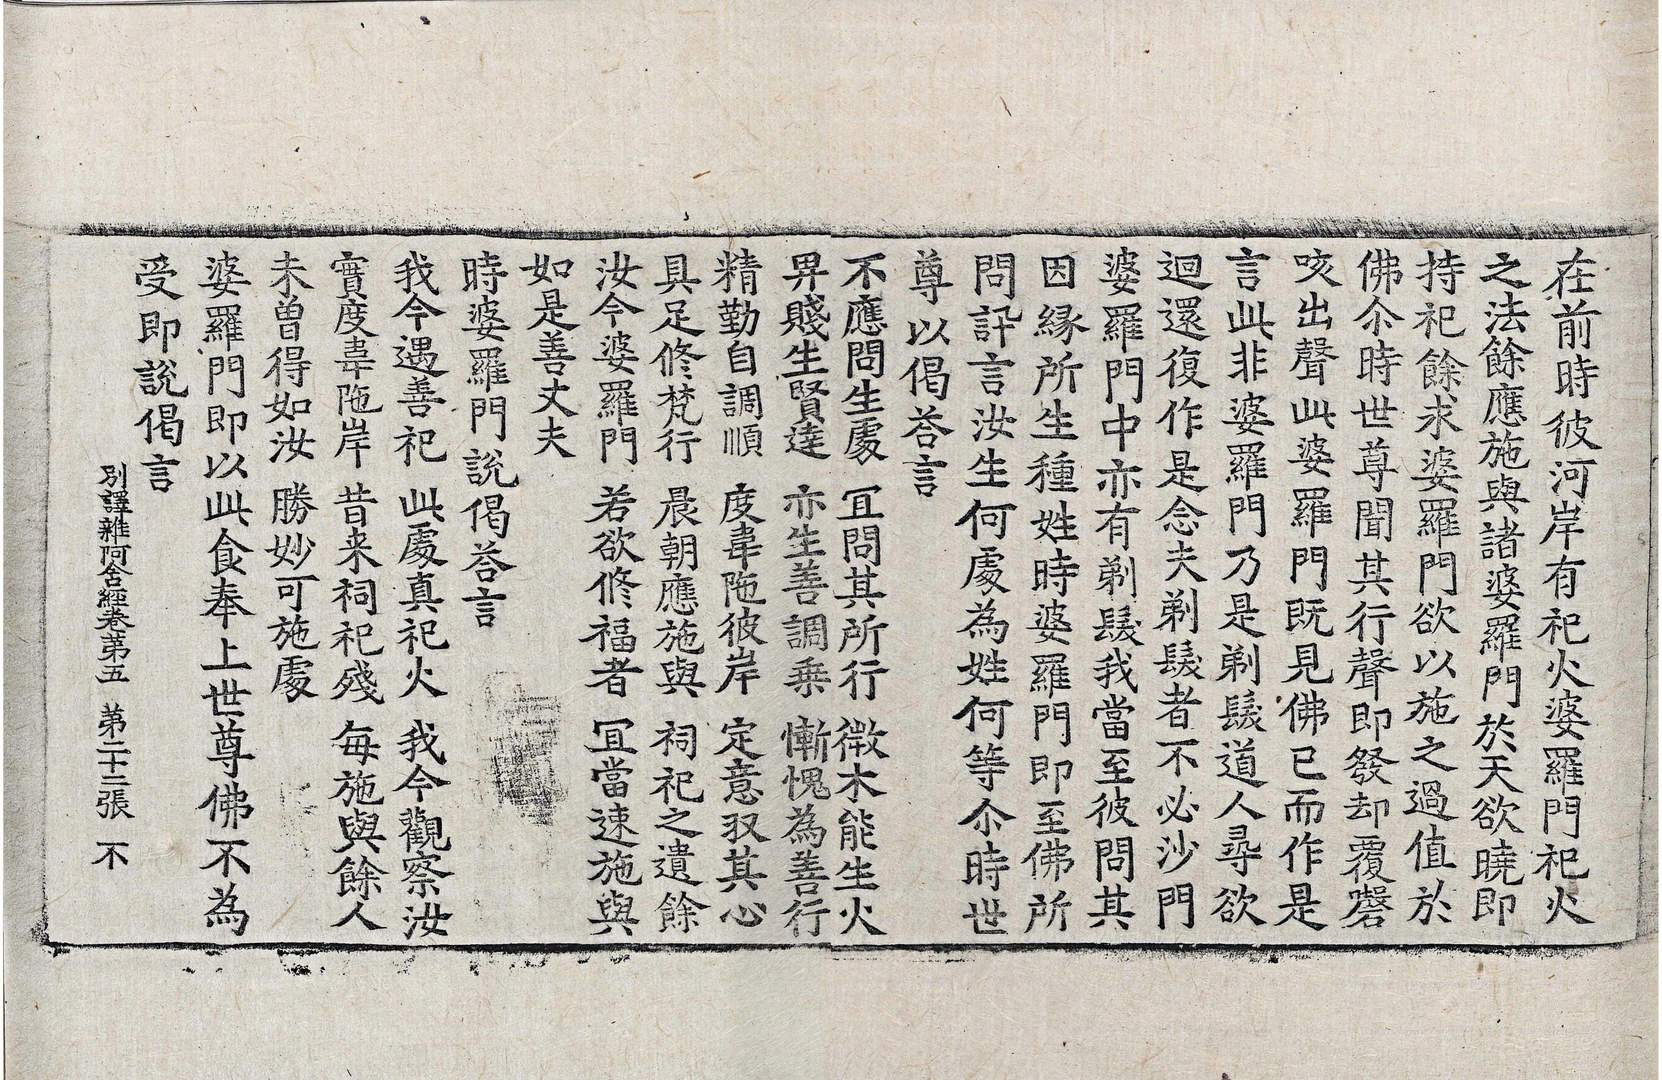 在前時彼河岸有祀火婆羅門祀火
之法餘應施與諸婆羅門於天欲曉即
持祀餘求婆羅門欲以施之過值於
佛尒時世尊聞其行聲即發却覆謦
咳出聲此婆羅門既見佛已而作是
言此非婆羅門乃是剃髮道人尋欲
迴還復作是念夫剃髮者不必沙門
婆羅門中亦有剃髮我當至彼問其
因縁所生種姓時婆羅門即至佛所
問訊言汝生何處為姓何等尒時世
尊以偈荅言
不應問生處 冝問其所行 微木能生火
卑賤生賢達 亦生善調乗 慚愧為善行
精勤自調順 度韋陁彼岸 定意収其心
具足修梵行 晨朝應施與 祠祀之遺餘
汝今婆羅門 若欲修福者 冝當速施與
如是善丈夫
時婆羅門說偈荅言
我今遇善祀 此處真祀火 我今觀察汝
實度韋陁岸 昔来祠祀殘 每施與餘人
未曽得如汝 勝妙可施處
婆羅門即以此食奉上世尊佛不為
受即說偈言
別譯雜阿含經卷第五 第二十三張 不